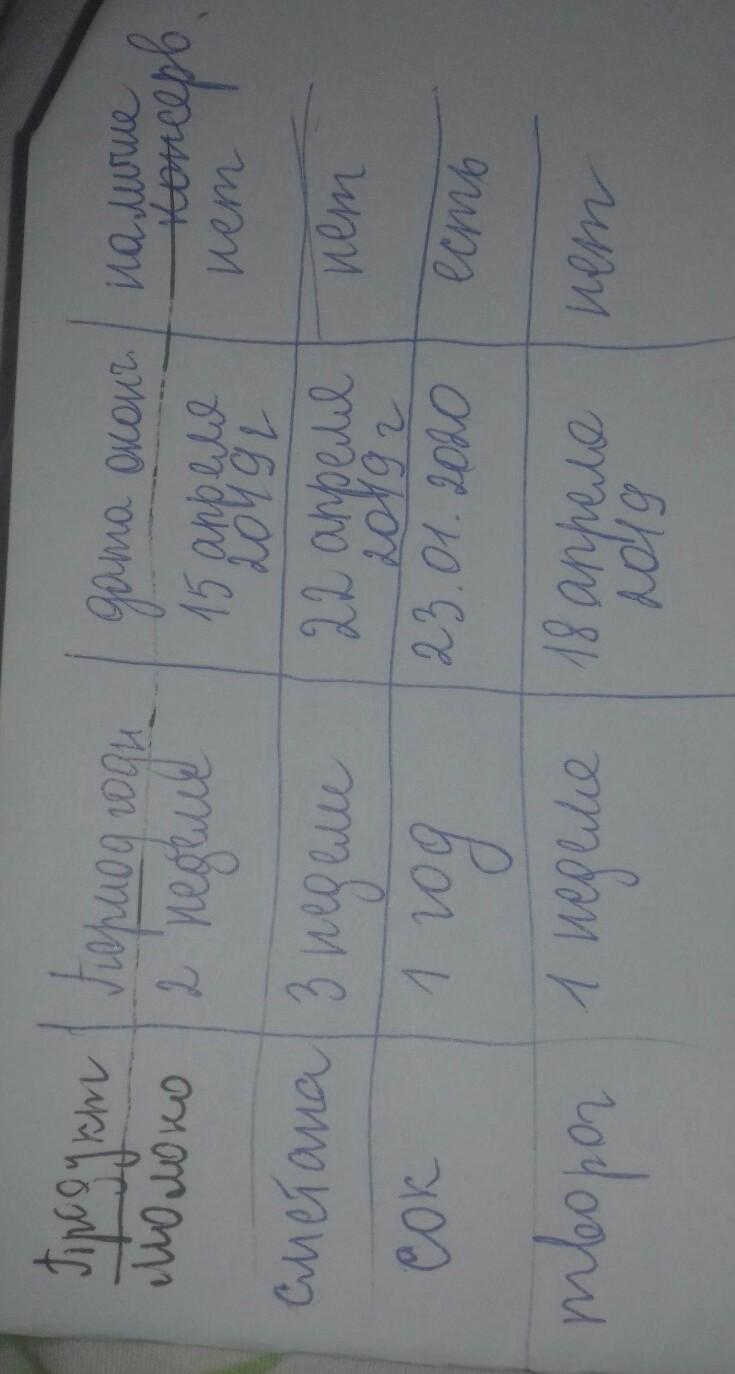 Продукт Период годн дата оконч. наличие консерв.
молоко 2 недели 15 апреля 2019 г нет
сметана 3 недели 22 апреля 2019 г нет
сок 1 год 23.01.2020 есть
творог 1 неделя 18 апреля 2019 нет